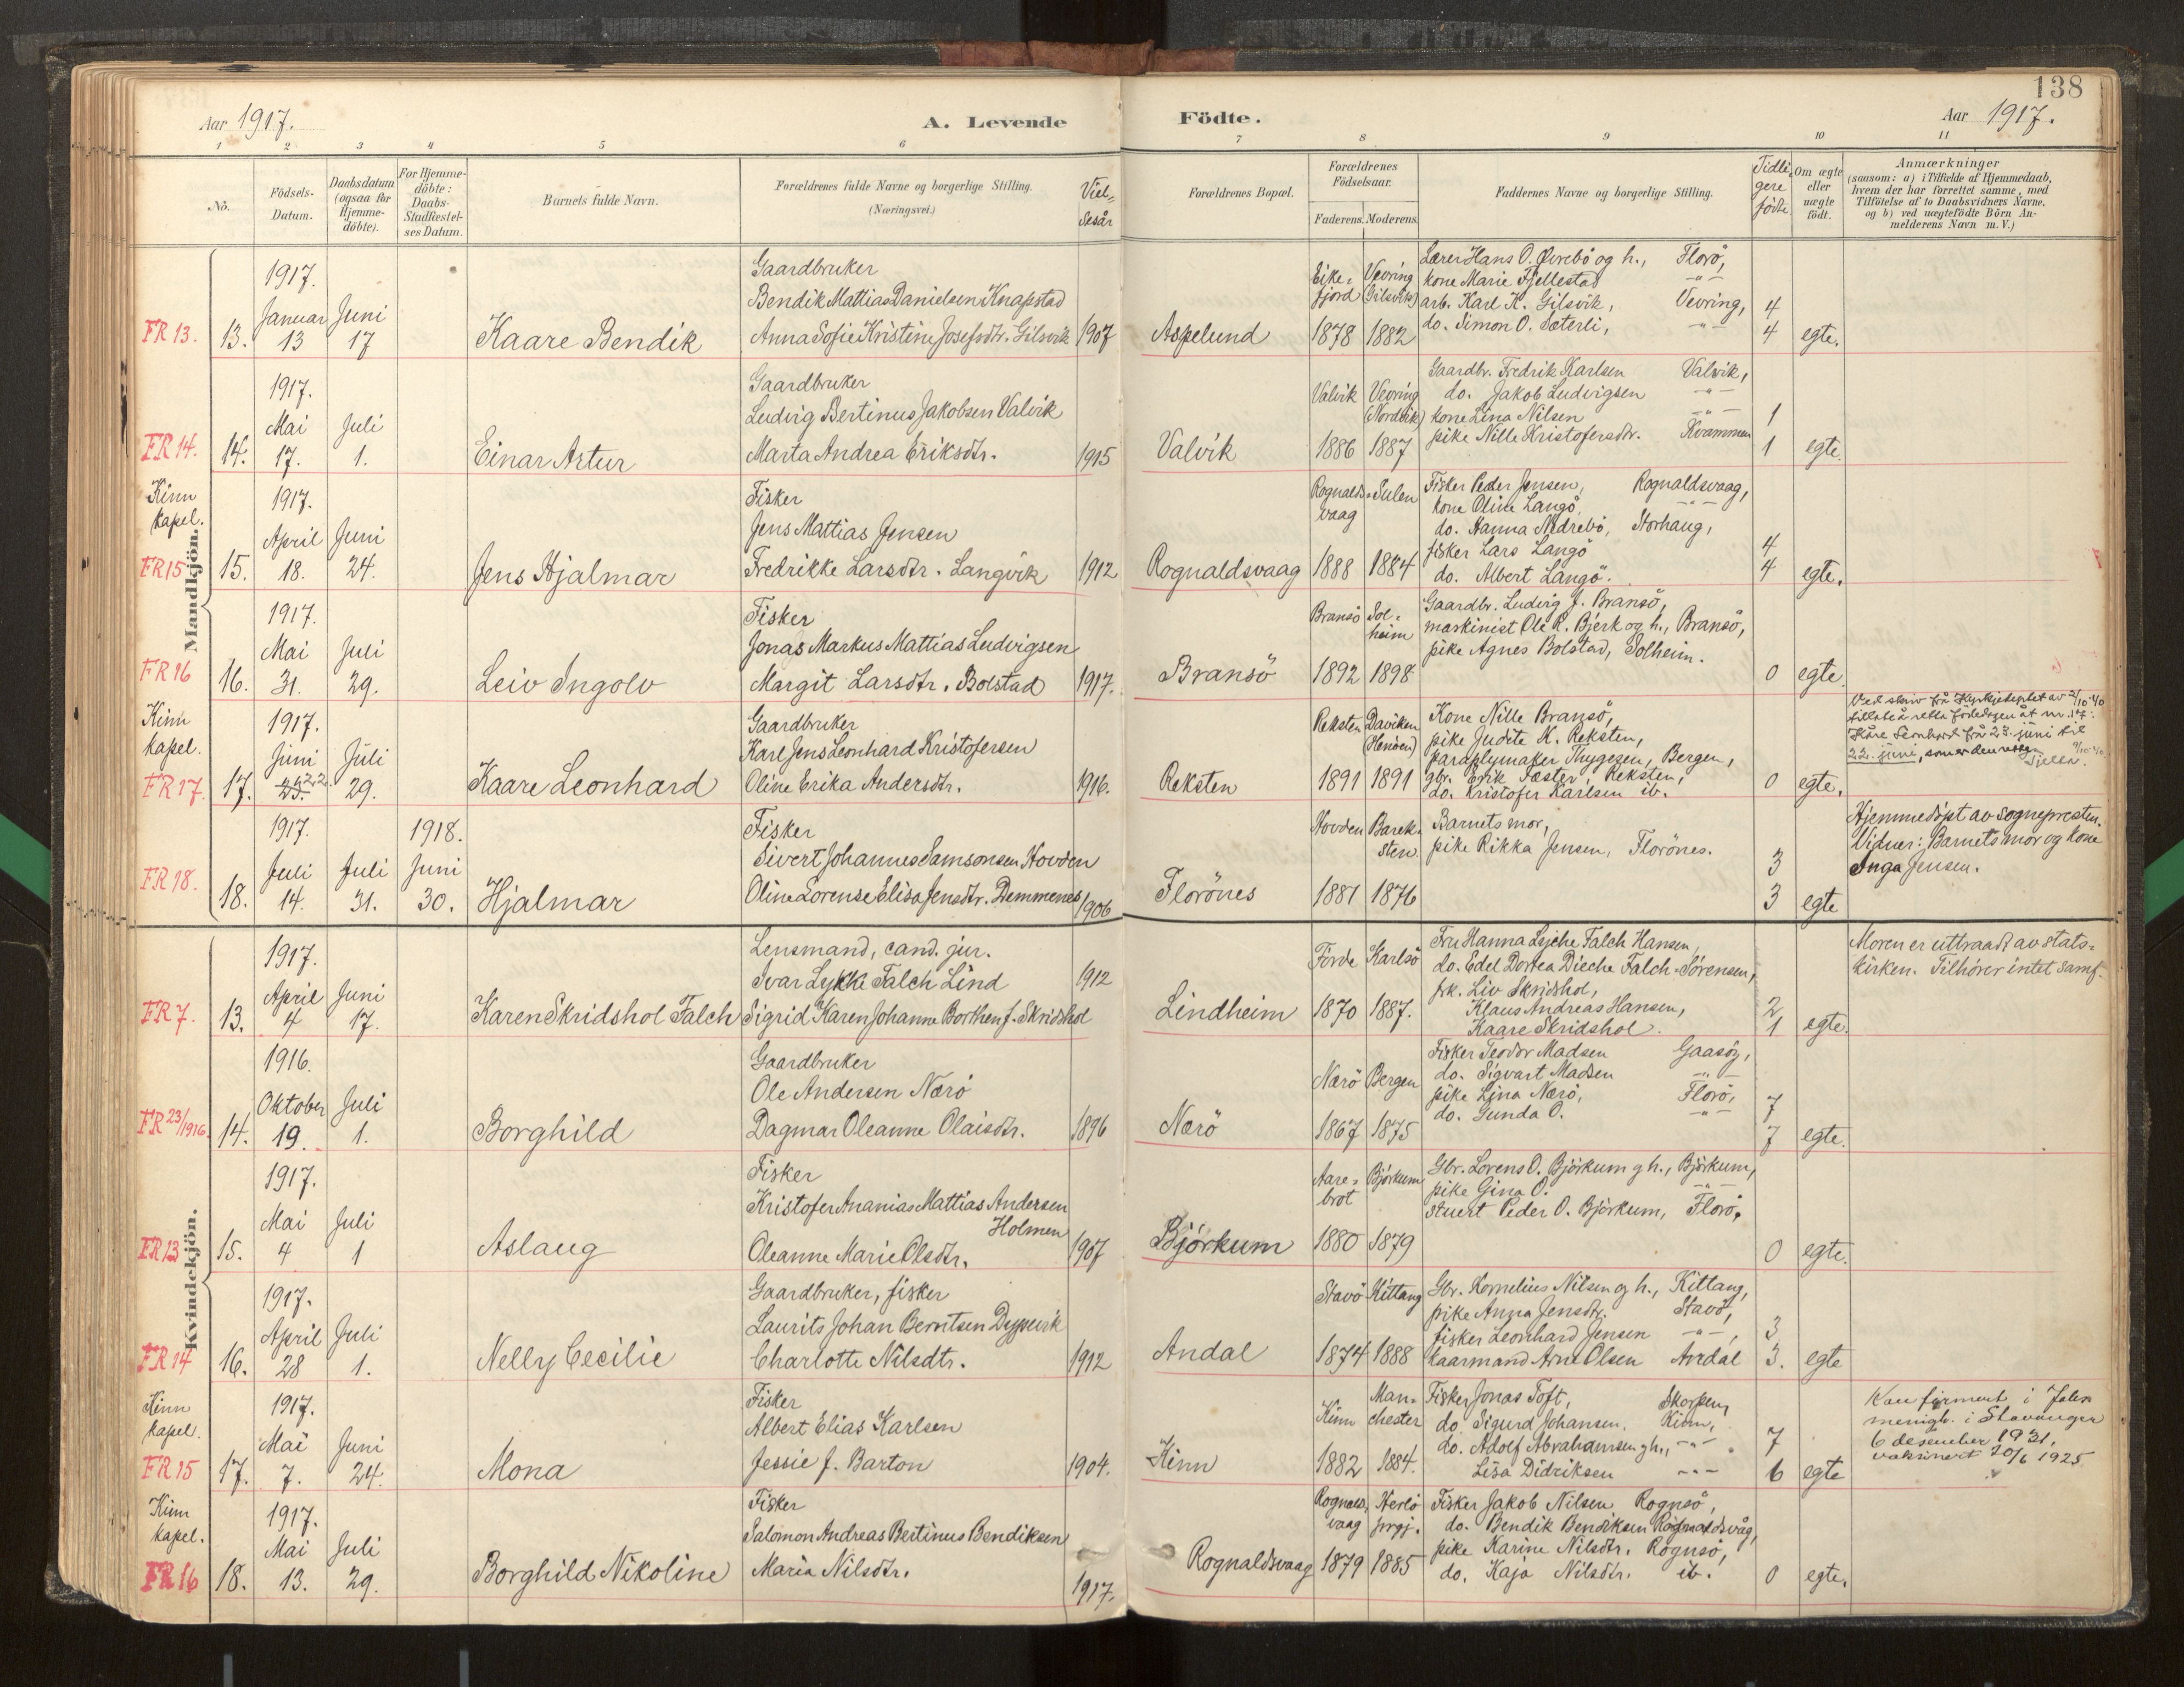 138
Aar 1917.
A. Levende
Födte.
Aar 1917.
1 2 3 4 5 6 7 8 9 10 11
No.
Födsels-
Datum.
Daabsdatum
(ogsaa for
Hjemme-
döbte).
For Hjemme-
döbte:
Daabs-
Stadfæstel-
ses Datum.
Barnets fulde Navn.
Forældrenes fulde Navne og borgerlige Stilling.
(Næringsvei.)
Viel-
sesår
Forældrenes Bopæl.
Forældrenes
Födselsaar.
Faderens. Moderens.
Faddernes Navne og borgerlige Stilling.
Tidli
gere
födte
Om ægte
eller
uægte
födt.
Anmærkninger
(saasom: a) i Tilfælde af Hjemmedaab,
hvem der har forrettet samme, med
Tilföielse af to Daabsvidners Navne.
og b) ved uægtefödte Börn An-
melderens Navn m. V.)
Mandkjön.
FR 13. 13.
1917.
Januar
13
Juni
17
Kaare Bendik
Gaardbruker
Bendik Mattias Danielsen Knapstad
Anna Sofie Kristine Josefsdtr. Gilsvik 1907
Aspelund
Eike-
fjord
1878
Vevring
(Gilsvik)
1882
Lærer Hans O. Övrebö og h., Florö,
kone Marie Fjellestad -"-
arb. Karl K. Gilsvik, Vevring,
do. Simon O. Sæterli, -"-
4
4
egte.
FR 14. 14.
1917.
Mai
17.
Juli
1.
Einar Artur
Gaardbruker
Ludvig Bertinus Jakobsen Valvik
Marta Andrea Eriksdtr. 1915
Valvik
Valvik
1886
Vevring
(Nordvik)
1887
Gaardbr. Fredrik Karlsen Valvik,
do. Jakob Ludvigsen -"-
kone Lina Nilsen -"-
pike Nille Kristofersdtr. Kvammen
1
1
egte.
Kinn
kapel.
FR 15 15.
1917.
April
18.
Juni
24.
Jens Hjalmar
Fisker
Jens Mattias Jensen
Fredrikke Larsdtr. Langvik 1912
Rognaldsvaag
Rognalds-
vaag
1888
Sulen
1884
Fisker Peder Jensen, Rognaldsvaag,
kone Oline Langö, -"-
do. Hanna Nedrebö, Storhaug,
fisker Lars Langö
do. Albert Langö.
4
4
egte.
FR 16 16.
1917.
Mai
31.
Juli
29.
Leiv Ingolv
Fisker
Jonas Markus Mattias Ludvigsen
Margit Larsdtr. Bolstad 1917.
Bransö
Bransö
1892
Sol-
heim
1898
Gaardbr. Ludvig J. Bransö,
maskinist Ole R. Bjerk og h., Bransö,
pike Agnes Bolstad, Solheim.
0
egte.
Kinn
kapel.
FR 17. 17.
1917.
Juni
25. 22.
Juli
29.
Kaare Leonhard
Gaardbruker
Karl Jens Leonhard Kristofersen
Oline Erika Andersdtr. 1916.
Reksten
Reksten
1891
Daviken
(Henöen)
1891
Kone Nille Bransö,
pike Judite K. Reksten,
paraplymaker Thygesen, Bergen,
gbr. Erik Fæster, Reksten,
do. Kristofer Karlsen ib.
0
egte.
Ved skriv frå Kyrkjedept. av 2/10 40
tillate å retta födedagen åt nr. 17:
Kåre Leonhard frå 25. juni til
22. juni, som er den rette.
FR 18. 18.
1917.
Juli
14.
Juli
31.
1918.
Juni
30.
Hjalmar
Fisker
Sivert Johannes Samsonsen Hovden
Oline Lorense Elisa Jensdtr. Demmenes 1906
Florönes
Hovden
1881
Barek-
sten
1876
Barnets mor,
pike Rikka Jensen, Florönes.
3
3
egte
Hjemmedöpt av sognepresten.
Vidner: Barnets mor og kone
Inga Jensen.
Kvindekjön.
FR 7. 13.
1917.
April
4
Juni
17.
Karen Skridshol Falch
Lensmand, cand. jur.
Ivar Lykke Falch Lind 1912
Sigrid Karen Johanne Borthen f. Skridshol
Lindheim
Förde
1870
Karlsö
1887.
Fru Hanna Lyche Falch Hansen,
do. Edel Dortea Dieche Falch-Sörensen,
frk. Liv Skridshol,
Klaus Andreas Hansen,
Kaare Skridshol.
2
1
egte.
Moren er uttraadt av stats-
kirken. Tilhörer intet samf.
FR 23/1916. 14.
1916.
Oktober
19.
Juli
1.
Borghild
Gaardbruker
Ole Andersen Nærö
Dagmar Oleanne Olaisdtr. 1896
Nærö
Nærö
1867
Bergen
1875
Fisker Teodor Madsen Gaasöy,
do. Sigvart Madsen -"-
pike Lina Nærö, Florö,
do. Gunda O. -"-
7
7
egte.
FR 13 15.
1917.
Mai
4
Juli
1
Aslaug
Fisker
Kristofer Ananias Mattias Andersen
Holmen
Oleanne Marie Olsdtr. 1907
Björkum
Aare-
brot
1880
Björkum
1879
Gbr. Lorens O. Björkum g h., Björkum,
pike Gina O. -"-
stuert Peder O. Björkum, Florö.
0
egte.
FR 14 16.
1917.
April
28
Juli
1.
Nelly Cecilie
Gaardbruker, fisker
Laurits Johan Berntsen Dypevik
Charlotte Nilsdtr. 1912
Andal
Stavö
1874
Kittang
1888
Gbr. Kornelius Nilsen og h., Kittang,
pike Anna Jensdtr. Stavö,
fisker Leonhard Jensen -"-,
kaarmand Arne Olsen Andal
3
3.
egte
Kinn
kapel.
FR 15 17.
1917.
Mai
7.
Juni
24.
Mona
Fisker
Albert Elias Karlsen
Jessie f. Barton 1904.
Kinn
Kinn
1882
Man-
chester
1884.
Fisker Jonas Toft, Skorpen,
do. Sigurd Johansen. Kinn,
do. Adolf Abrahamsen g h., -"-
Lisa Didriksen -"-
7
6
egte
Konfirmert i
menigh. i Stavanger
6 desember 1931,
vaksinert 20/6 1925
Kinn
kapel.
FR 16 18.
1917.
Mai
13.
Juli
29.
Borghild Nikoline
Fisker
Salomon Andreas Bertinus Bendiksen
Maria Nilsdtr. 1917.
Rognaldsvaag
Rognalds-
vaag
1879
Herlö
prgj.
1885
Fisker Jakob Nilsen Rognsö,
do. Bendik Bendiksen Rognaldsvåg,
pike Karine Nilsdtr. Rognsö,
do. Kaja Nilsdtr. ib.
0
egte.